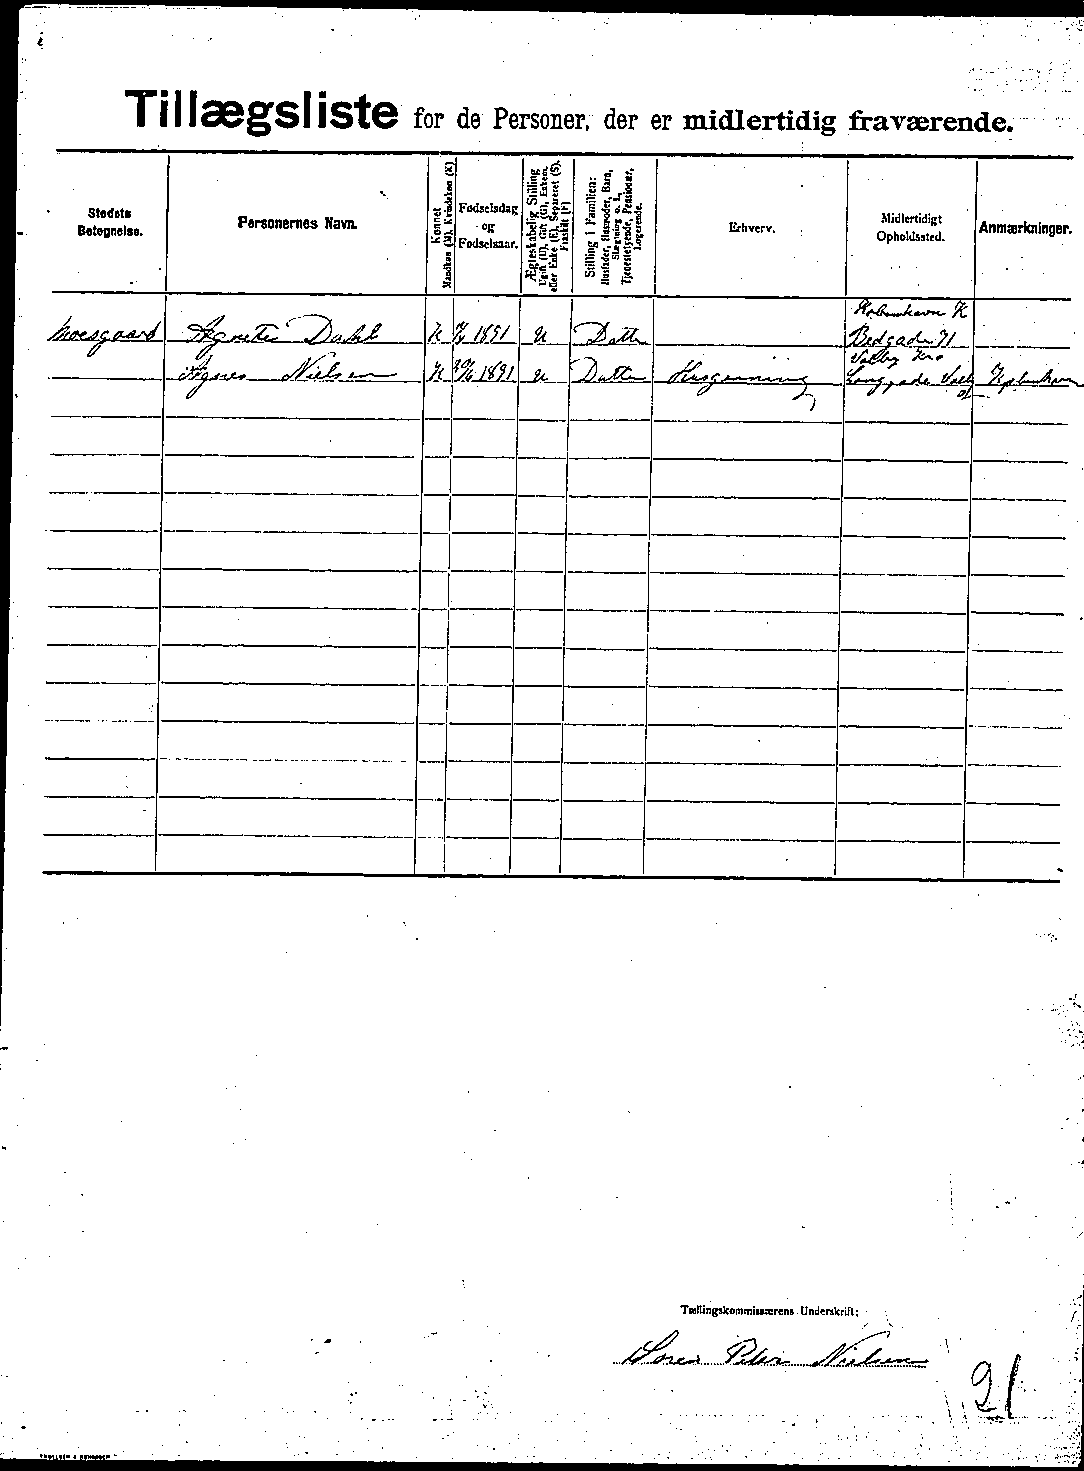 Tillægsliste for de Personer, der er midlertidig fraværende.
Stedets Betegnelse.
Personernes Navn.
Kønnet
Mandkøn (M), Kvindekøn (K)
Fødselsdag
og
Fødselsaar.
Ægteskabelig Stilling
Ugift (U), Gift (G), Enkem.
eller Enke (E), Separeret (S),
Fraskilt (F)
Stilling i Familien:
Husfader, Husmoder, Barn,
Slægtning o. l.,
Tjenestetyende, Pensionær,
Logerende.
Erhverv.
Midlertidigt
Opholdssted.
Anmærkninger.
København K
Moesgaard Agnete Dahl K 1891 U Datter Bredgade 71
Valby
Agnes Nielsen K 1891 U Datter Husgerning Langgade Valby København
Tællingskommissærens Underskrift:
Søren Peter Nielsen
21